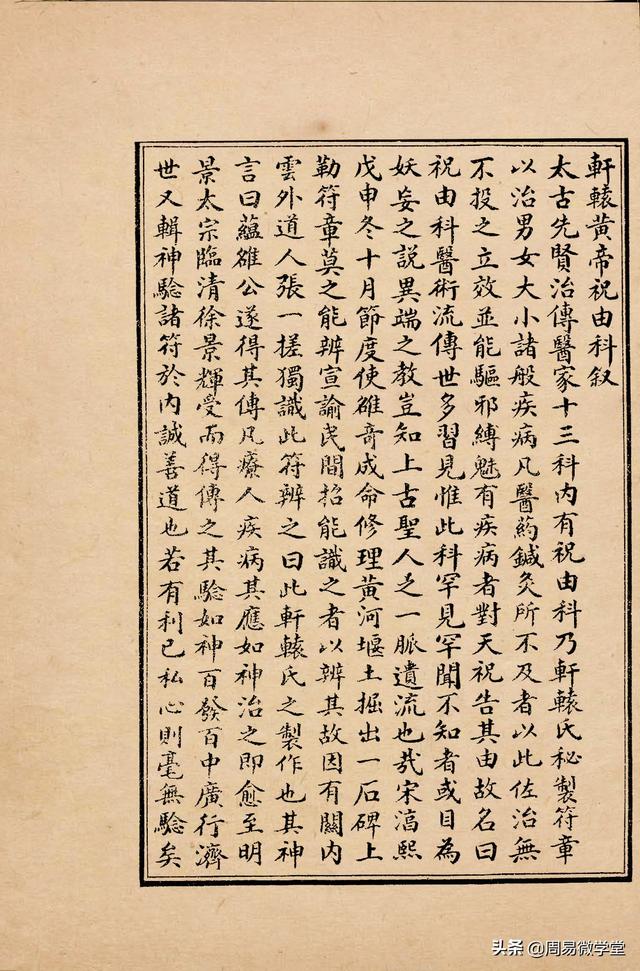 軒轅黃帝祝由科叙
太古先賢治傳醫家十三科内有祝由科乃軒轅氏秘製符章
以治男女大小諸般疾病凡醫药鍼灸所不及者以此佐治無
不投之立效並能驅邪縛魅有疾病者對天祝告其由故名曰
祝由科醫術流傳世多習見惟此科罕見罕聞不知者或目為
妖妄之説異端之教豈知上古聖人之一脈遺流也哉宋淳熙
戊申冬十月節度使雒竒成命修理黃河堰土掘出一石碑上
勒符章莫之能辨宣諭民間招能識之者以辨其故因有闗内
雲外道人張一搓獨識此符辨之曰此軒轅氏之製作也其神
言曰藴雒公遂得其傳凡療人疾病其應如神治之即愈至明
景太宗臨清徐景輝受而得傳之其驗如神百發百中廣行濟
世又輯神驗諸符於内誠善道也若有利己私心則毫無驗矣
头条 @周易微学堂